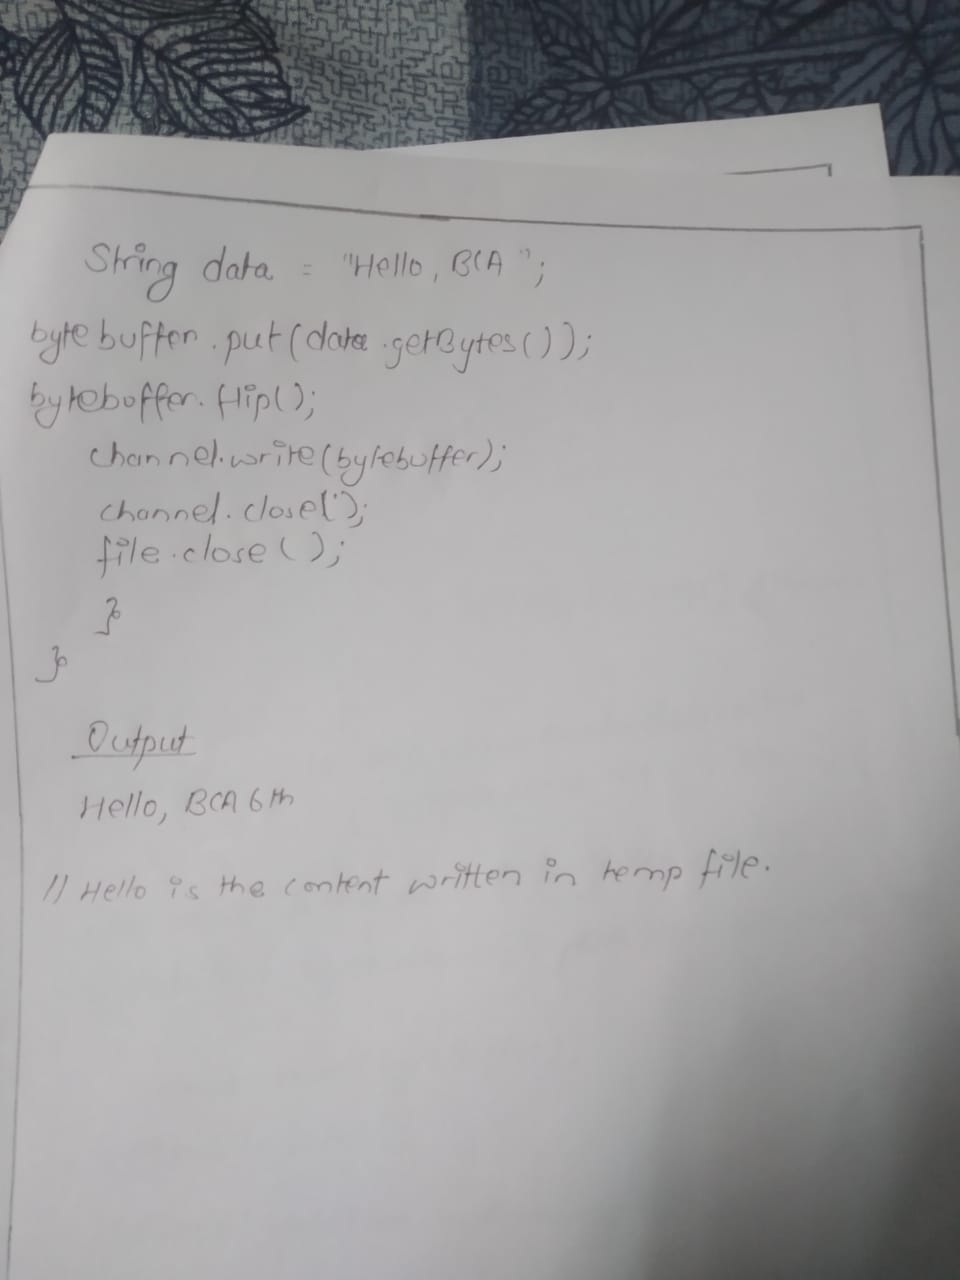 String data = "Hello, BCA ";
bytebuffer.put(data.getBytes());
bytebuffer.flip();
channel.write(bytebuffer);
channel.close();
file.close();
}
}
Output
Hello, BCA 6th
// Hello is the content written in temp file.